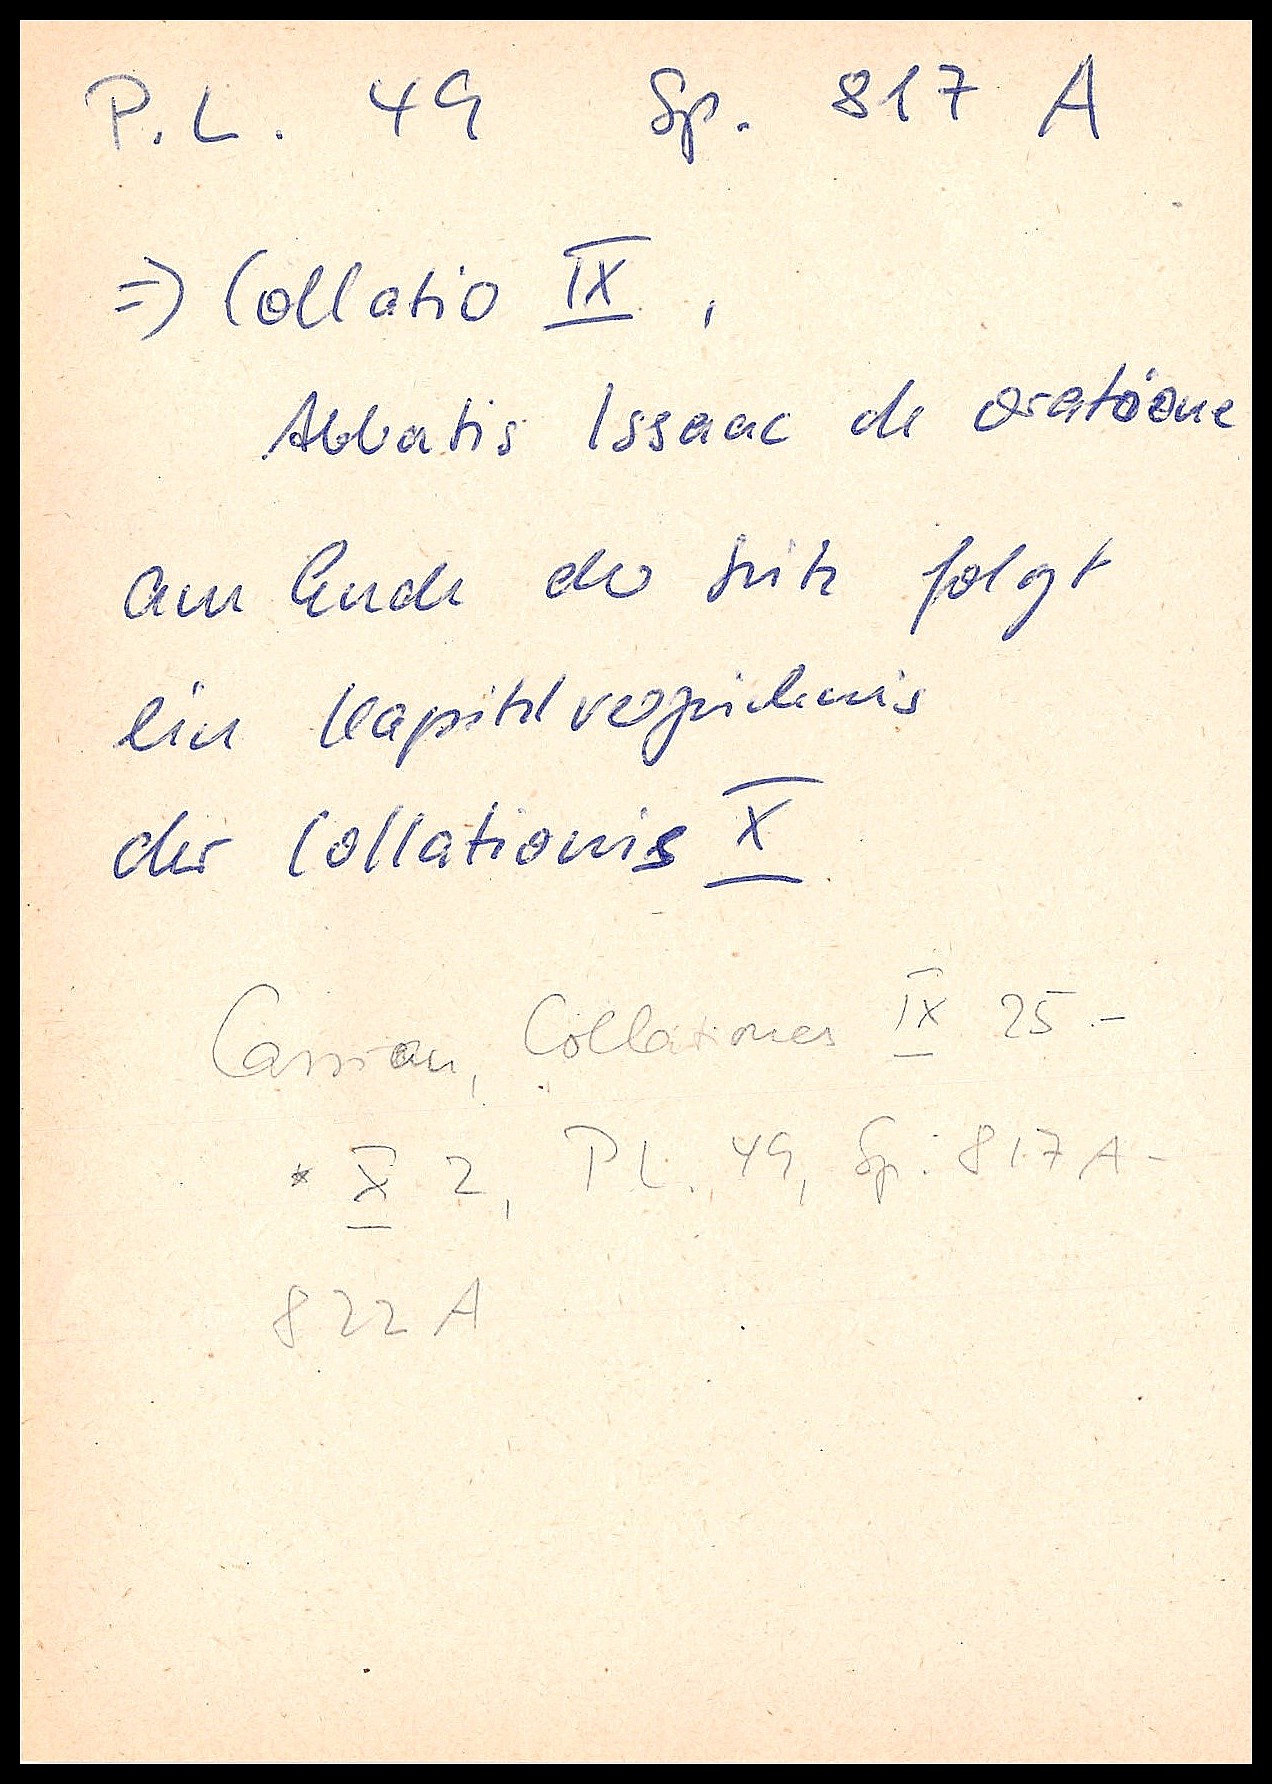 P.L. 49 Sp. 817 A
⇒ Collatio IX,
Abbatis Issaac de oratione
am Ende der Seite folgt
ein Kapitelverzeichnis
der Collationis X
Cassian, Collationes IX 25.-
* X 2, PL. 49, Sp. 817 A-
822 A